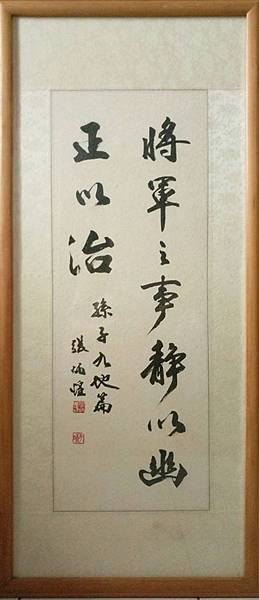 將軍之事靜以幽
正以治
孫子九地篇
張